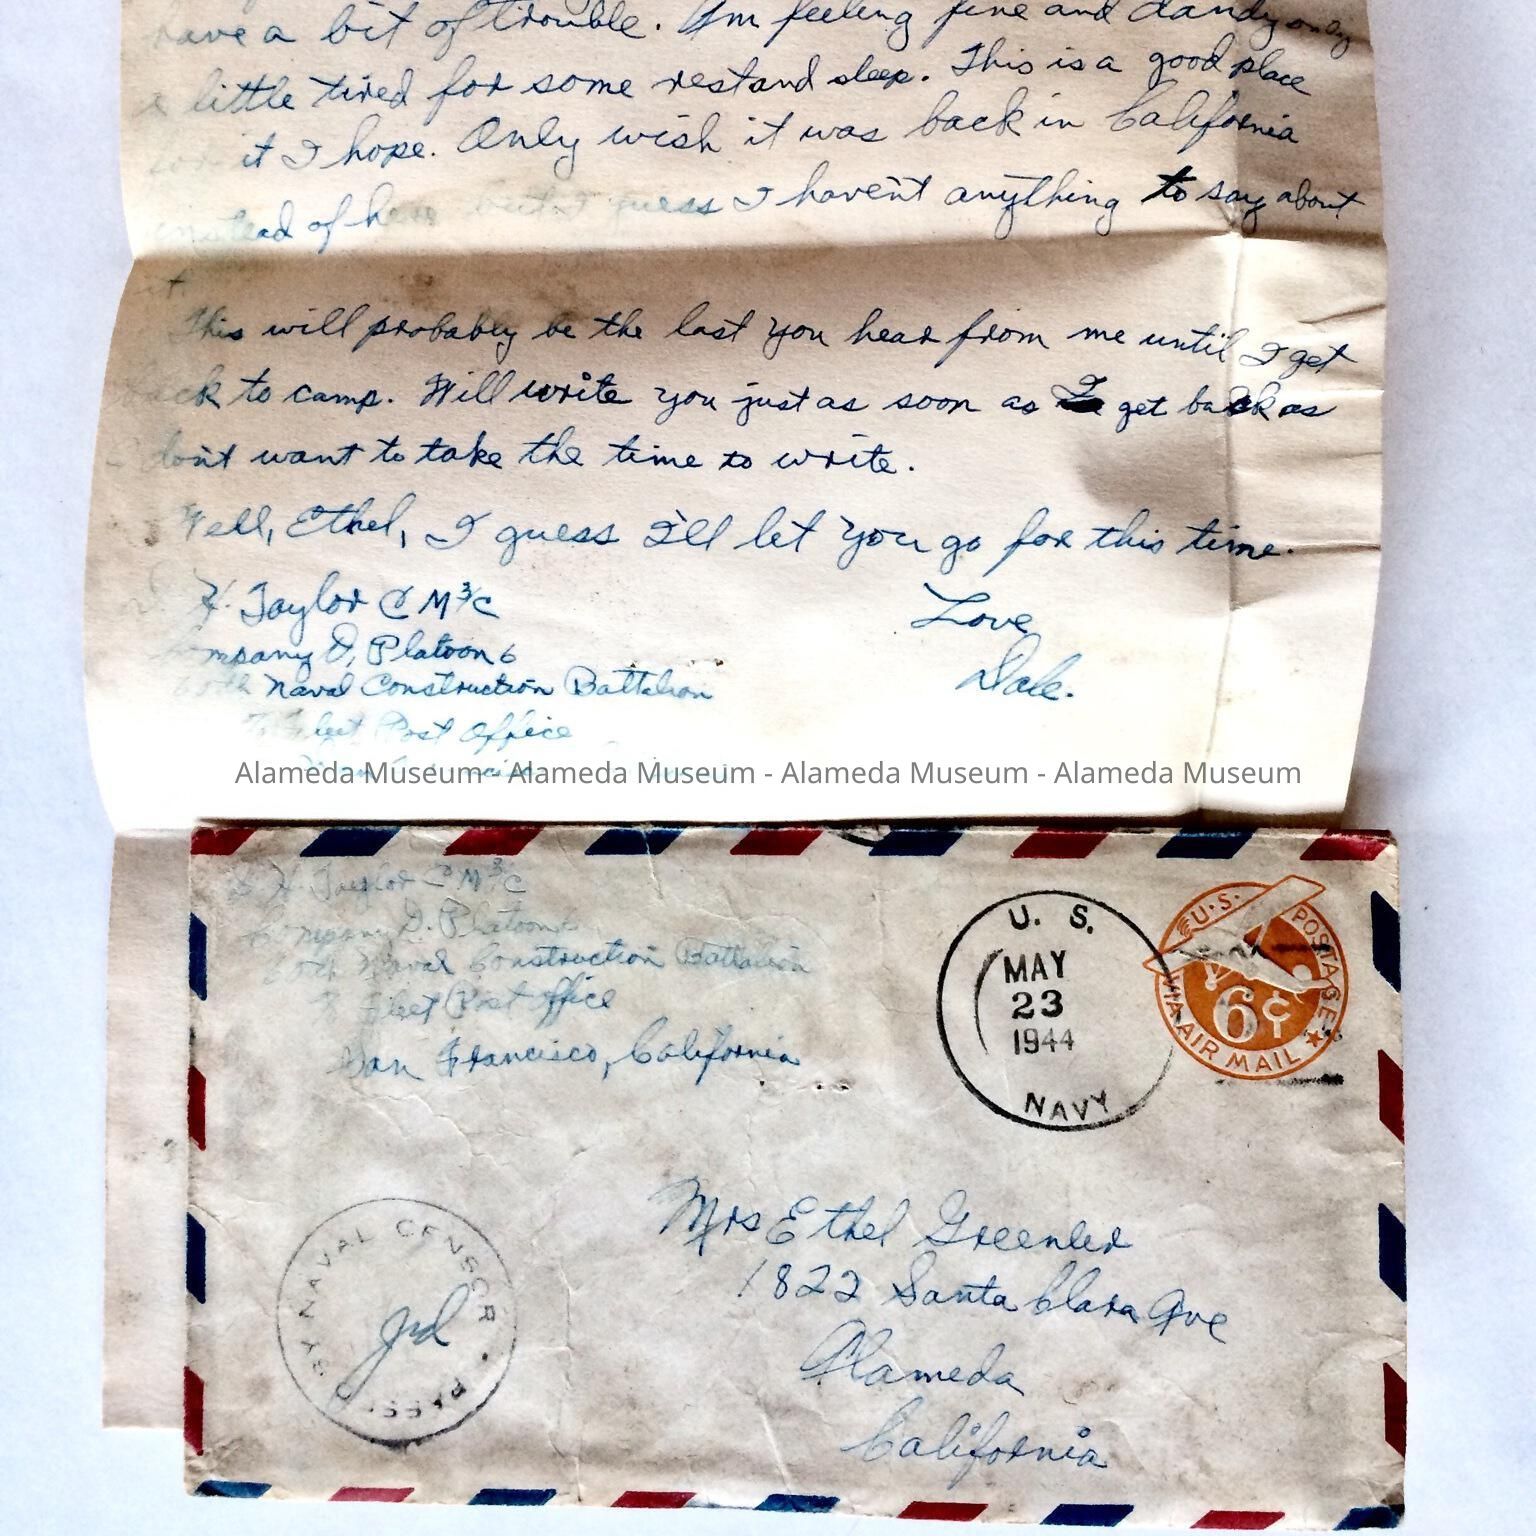 have a bit of trouble. I'm feeling fine and dandy only
a little tired for some rest and sleep. This is a good place
for it I hope. Only wish it was back in California
instead of here but I guess I haven't anything to say about
it.
This will probably be the last you hear from me until I get
back to camp. Will write you just as soon as I get back as
don't want to take the time to write.
Well, Ethel, I guess I'll let you go for this time.
Love
Dale.
H. Taylor C M 3/C
Company D, Platoon 6
60th Naval Construction Battalion
Fleet Post Office
Alameda Museum - Alameda Museum - Alameda Museum - Alameda Museum
D H. Taylor C M 3/C
Company D. Platoon 6
60th Naval Construction Battalion
% Fleet Post Office
San Francisco, California
U. S.
MAY
23
1944
NAVY
U.S. POSTAGE
6¢
VIA AIR MAIL
PASSED BY NAVAL CENSOR
Mrs Ethel Greenler
1822 Santa Clara Ave
Alameda
California